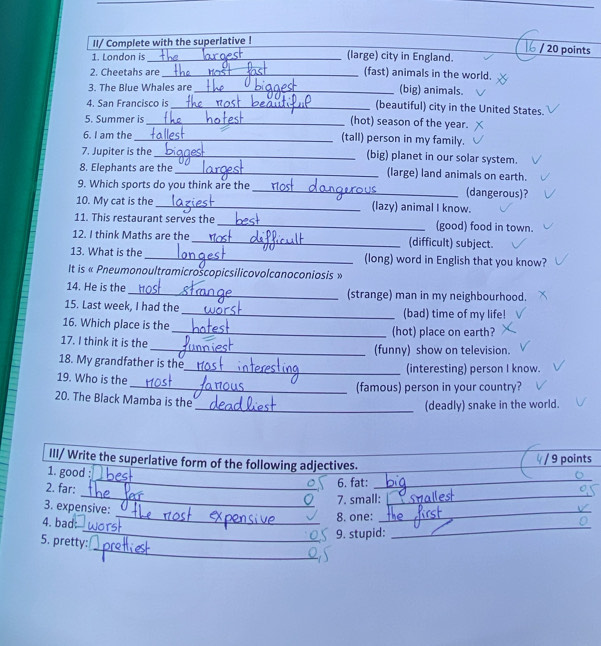 II/ Complete with the superlative ! 16 / 20 points
1. London is the largest (large) city in England.
2. Cheetahs are the most fast (fast) animals in the world.
3. The Blue Whales are the biggest (big) animals.
4. San Francisco is the most beautiful (beautiful) city in the United States.
5. Summer is the hotest (hot) season of the year.
6. I am the tallest (tall) person in my family.
7. Jupiter is the biggest (big) planet in our solar system.
8. Elephants are the largest (large) land animals on earth.
9. Which sports do you think are the most dangerous (dangerous)?
10. My cat is the laziest (lazy) animal I know.
11. This restaurant serves the best (good) food in town.
12. I think Maths are the most difficult (difficult) subject.
13. What is the longest (long) word in English that you know?
It is « Pneumonoultramicroscopicsilicovolcanoconiosis »
14. He is the most strange (strange) man in my neighbourhood.
15. Last week, I had the worst (bad) time of my life!
16. Which place is the hotest (hot) place on earth?
17. I think it is the funniest (funny) show on television.
18. My grandfather is the most interesting (interesting) person I know.
19. Who is the most famous (famous) person in your country?
20. The Black Mamba is the deadliest (deadly) snake in the world.
III/ Write the superlative form of the following adjectives. 4 / 9 points
1. good : best 0,5 6. fat: big 0
2. far: the far 0 7. small: smallest 0,5
3. expensive: the most expensive 8. one: the first
4. bad: worst 0,5 9. stupid: 0
5. pretty: prettiest 0,5